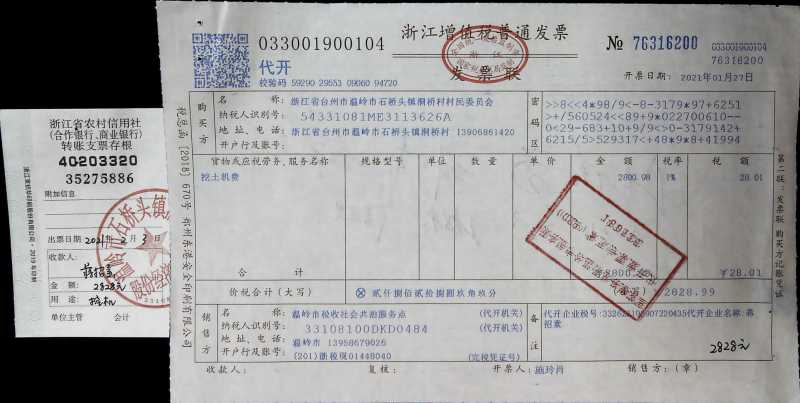 浙江省农村信用社
(合作银行、商业银行)
转账支票存根
40203320
35275886
附加信息
出票日期 2021年 2月 3日
收款人:
金 额: 2828元
用 途: 挖机
单位主管 会计
033001900104
浙江增值税普通发票
发票联
№ 76316200
033001900104
76316200
代开
校验码 59290 29553 09060 94720
开票日期: 2021年01月27日
税总函〔2018〕670号
购买方
名 称: 浙江省台州市温岭市石桥头镇澜桥村村民委员会
纳税人识别号: 54331081ME3113626A
地 址、电 话: 浙江省台州市温岭市石桥头镇澜桥村 13906861420
开户行及账号:
密码区
>>8<<4*98/9<-8-3179*97+6251
>+/560524<+89+9*022700610--
0<29-683+10+9/9<>0-3179142+
6215/5>529317+<48*9*8+41994
货物或应税劳务、服务名称 规格型号 单位 数 量 单 价 金 额 税率 税 额
挖土机费 2800.98 1% 28.01
合 计 ¥28.01
价税合计(大写) ⊗ 贰仟捌佰贰拾捌圆玖角玖分 2828.99
销售方
名 称: 温岭市税收社会共治服务点 (代开机关)
纳税人识别号: 33108100DKD0484 (代开机关)
地 址、电 话: 温岭市 13958679026
开户行及账号: (201)浙税现01448040 (完税凭证号)
备注
2828元
收款人: 复核: 开票人: 施玲肖 销售方:(章)
第二联:发票联 购买方记账凭证